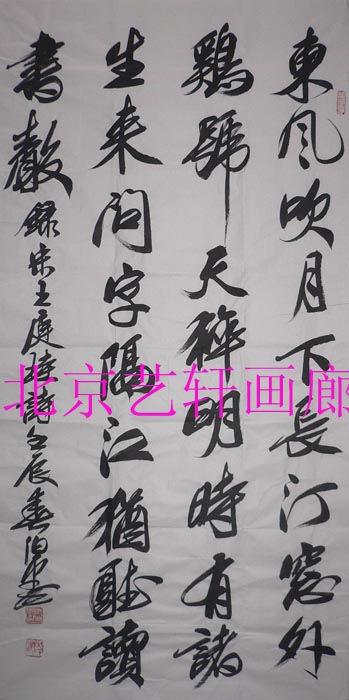 東風吹月下長汀窓外
鷄號天碎明時有諸
生来問字隔江猶聽讀
書聲錄宋王庭珪詩壬辰春
北京艺轩画廊